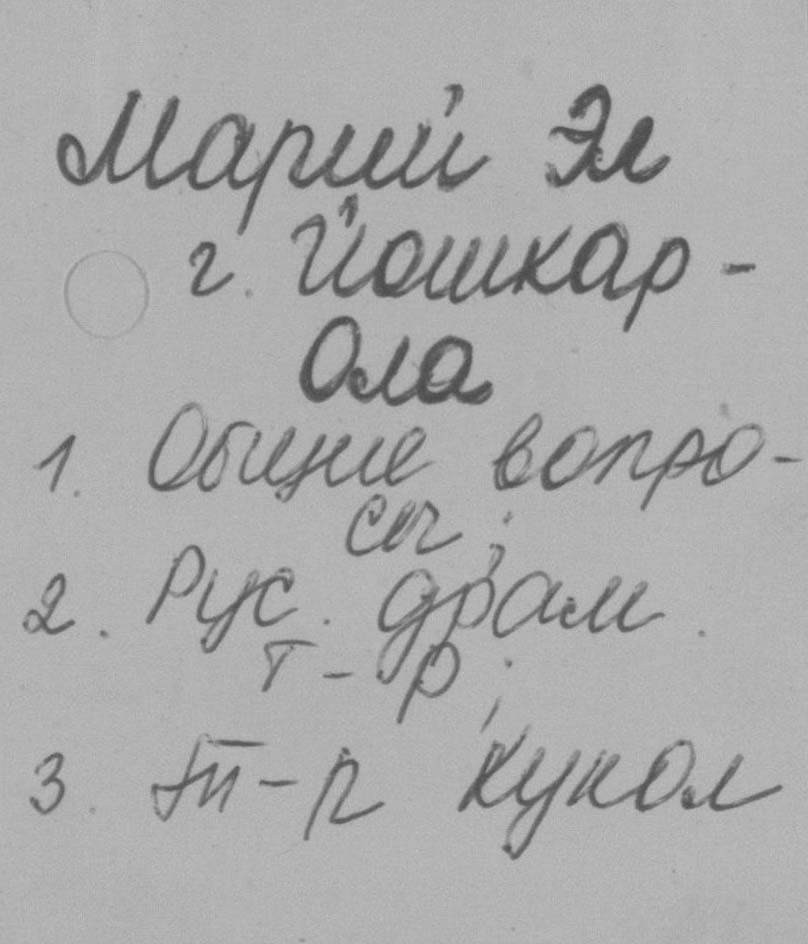 Марий Эл
г. Йошкар -
Ола
1. Общие вопро-
сы;
2. Рус. драм.
т - р;
3. т-р кукол